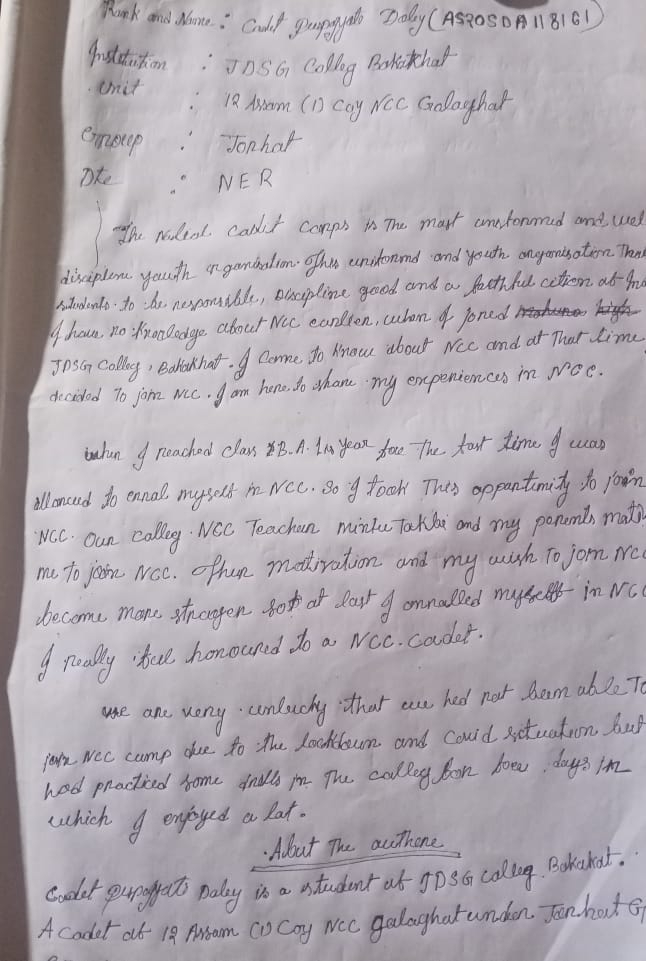 Rank and Name : Cadet Daley (AS20SDA118161)
Institution : JDSG Colleg Bokakhat
Unit : 12 Assam (1) Coy NCC Golaghat
Group : Jorhat
Dte : NER
The Cadet Corps is The most and wel
discipline youth organisation. This uniformd and youth organisation
students to be responsible, Discipline good and a faithful
I have no knowledge about NCC earlier, when I joned
JDSG Colleg, Bakakhat. I Come to know about NCC and at That time
decided To join NCC. I am here to share my experiences in NCC.
when I reached class B.A. 1st year for The fast time I was
allowed to myself in NCC. So I took This oppantimity to join
NCC. Our Colleg NCC Teacher and my parents
me To join NCC. motivation and my wish To join NCC
become more stronger at last I myself in NCC
I really feel honoured to a NCC. cadet.
we are very unlucky that we hed not been able To
join NCC camp due to the lockdown and Covid situation but
had practiced some drills in The colleg for days in
which I enjoyed a lat.
About The
Cadet Daley is a student at JDSG colleg, Bokakat.
A cadet of 12 Assam (1) Coy NCC galaghat under Jorhat G